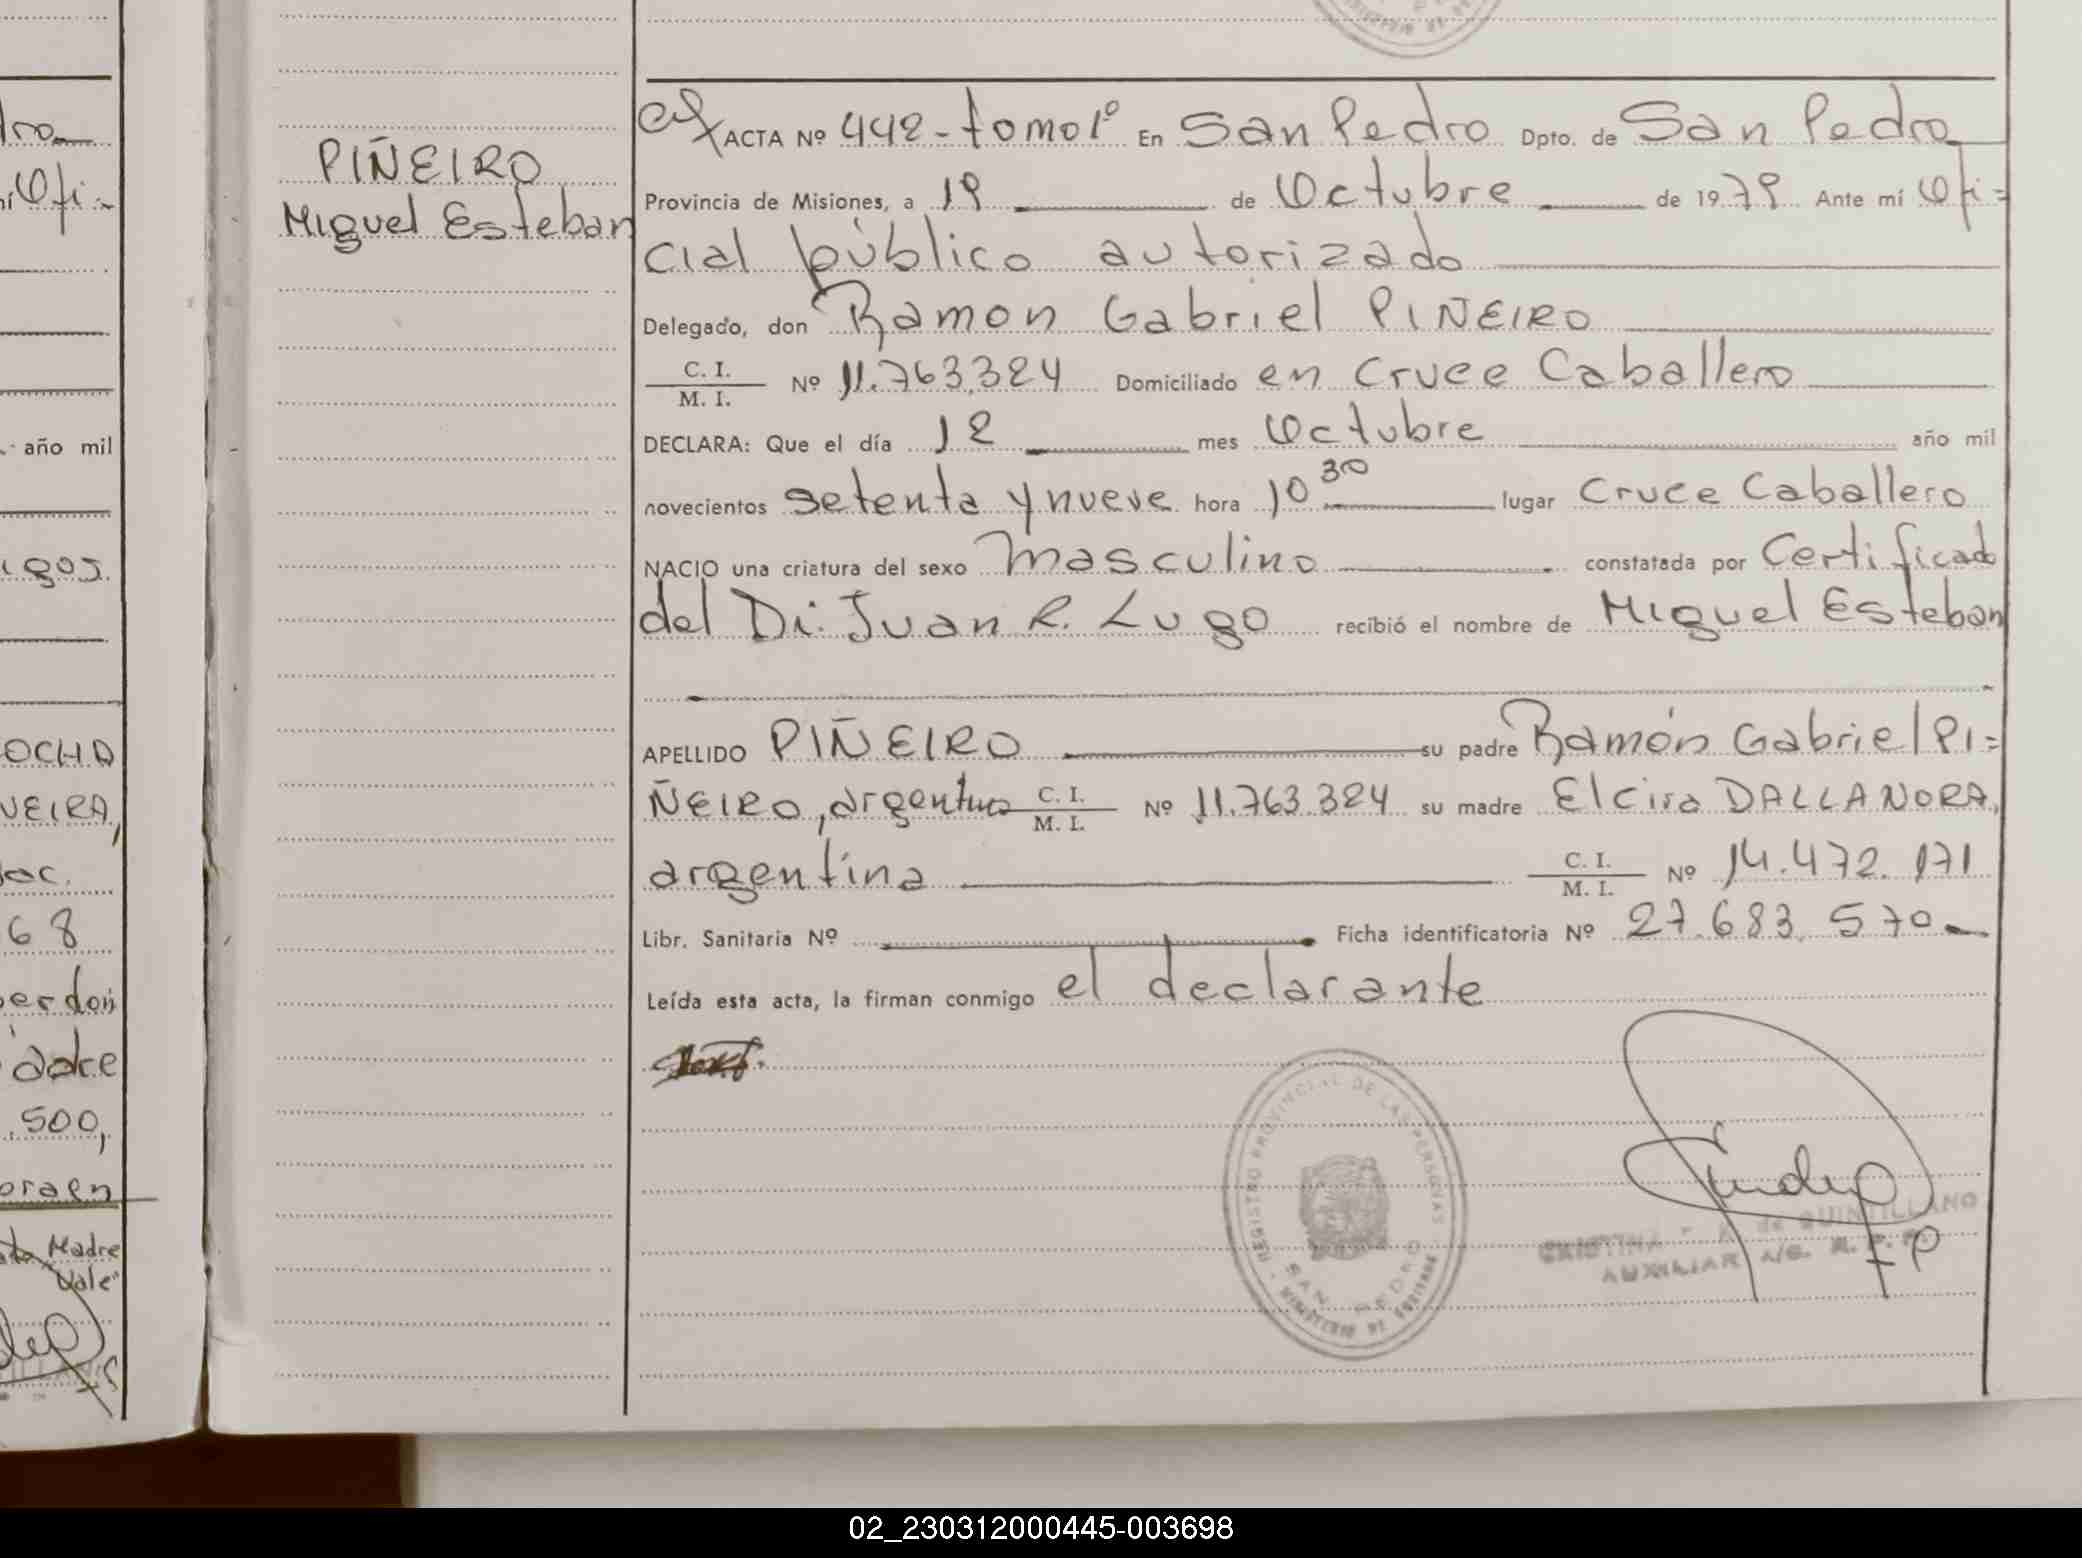 PIÑEIRO
Miguel Esteban
ACTA Nº 442 - tomo 1º En San Pedro Dpto. de San Pedro
Provincia de Misiones, a 19 de Octubre de 1979 Ante mí Ofi=
cial público autorizado
Delegado, don Ramon Gabriel PIÑEIRO
C. I.
M. I.
Nº 11.763.324 Domiciliado en Cruce Caballero
DECLARA: Que el día 12 mes Octubre año mil
novecientos setenta y nueve hora 10 30 lugar Cruce Caballero
NACIO una criatura del sexo masculino constatada por Certificado
del Dr. Juan R. Lugo recibió el nombre de Miguel Esteban
APELLIDO PIÑEIRO su padre Ramón Gabriel PI=
ÑEIRO, argentino C. I. M. I. Nº 11.763.324 su madre Elcira DALLANORA,
argentina C. I. M. I. Nº 14.472.171
Libr. Sanitaria Nº Ficha identificatoria Nº 27.683.570
Leída esta acta, la firman conmigo el declarante
REGISTRO PROVINCIAL DE LAS PERSONAS
SAN PEDRO
MINISTERIO DE GOBIERNO
CRISTINA de QUINTILLANO
AUXILIAR A/C. R. P. P.
año mil
igos.
OCHA
VEIRA,
68
500,
Madre
Vale"
02_230312000445-003698